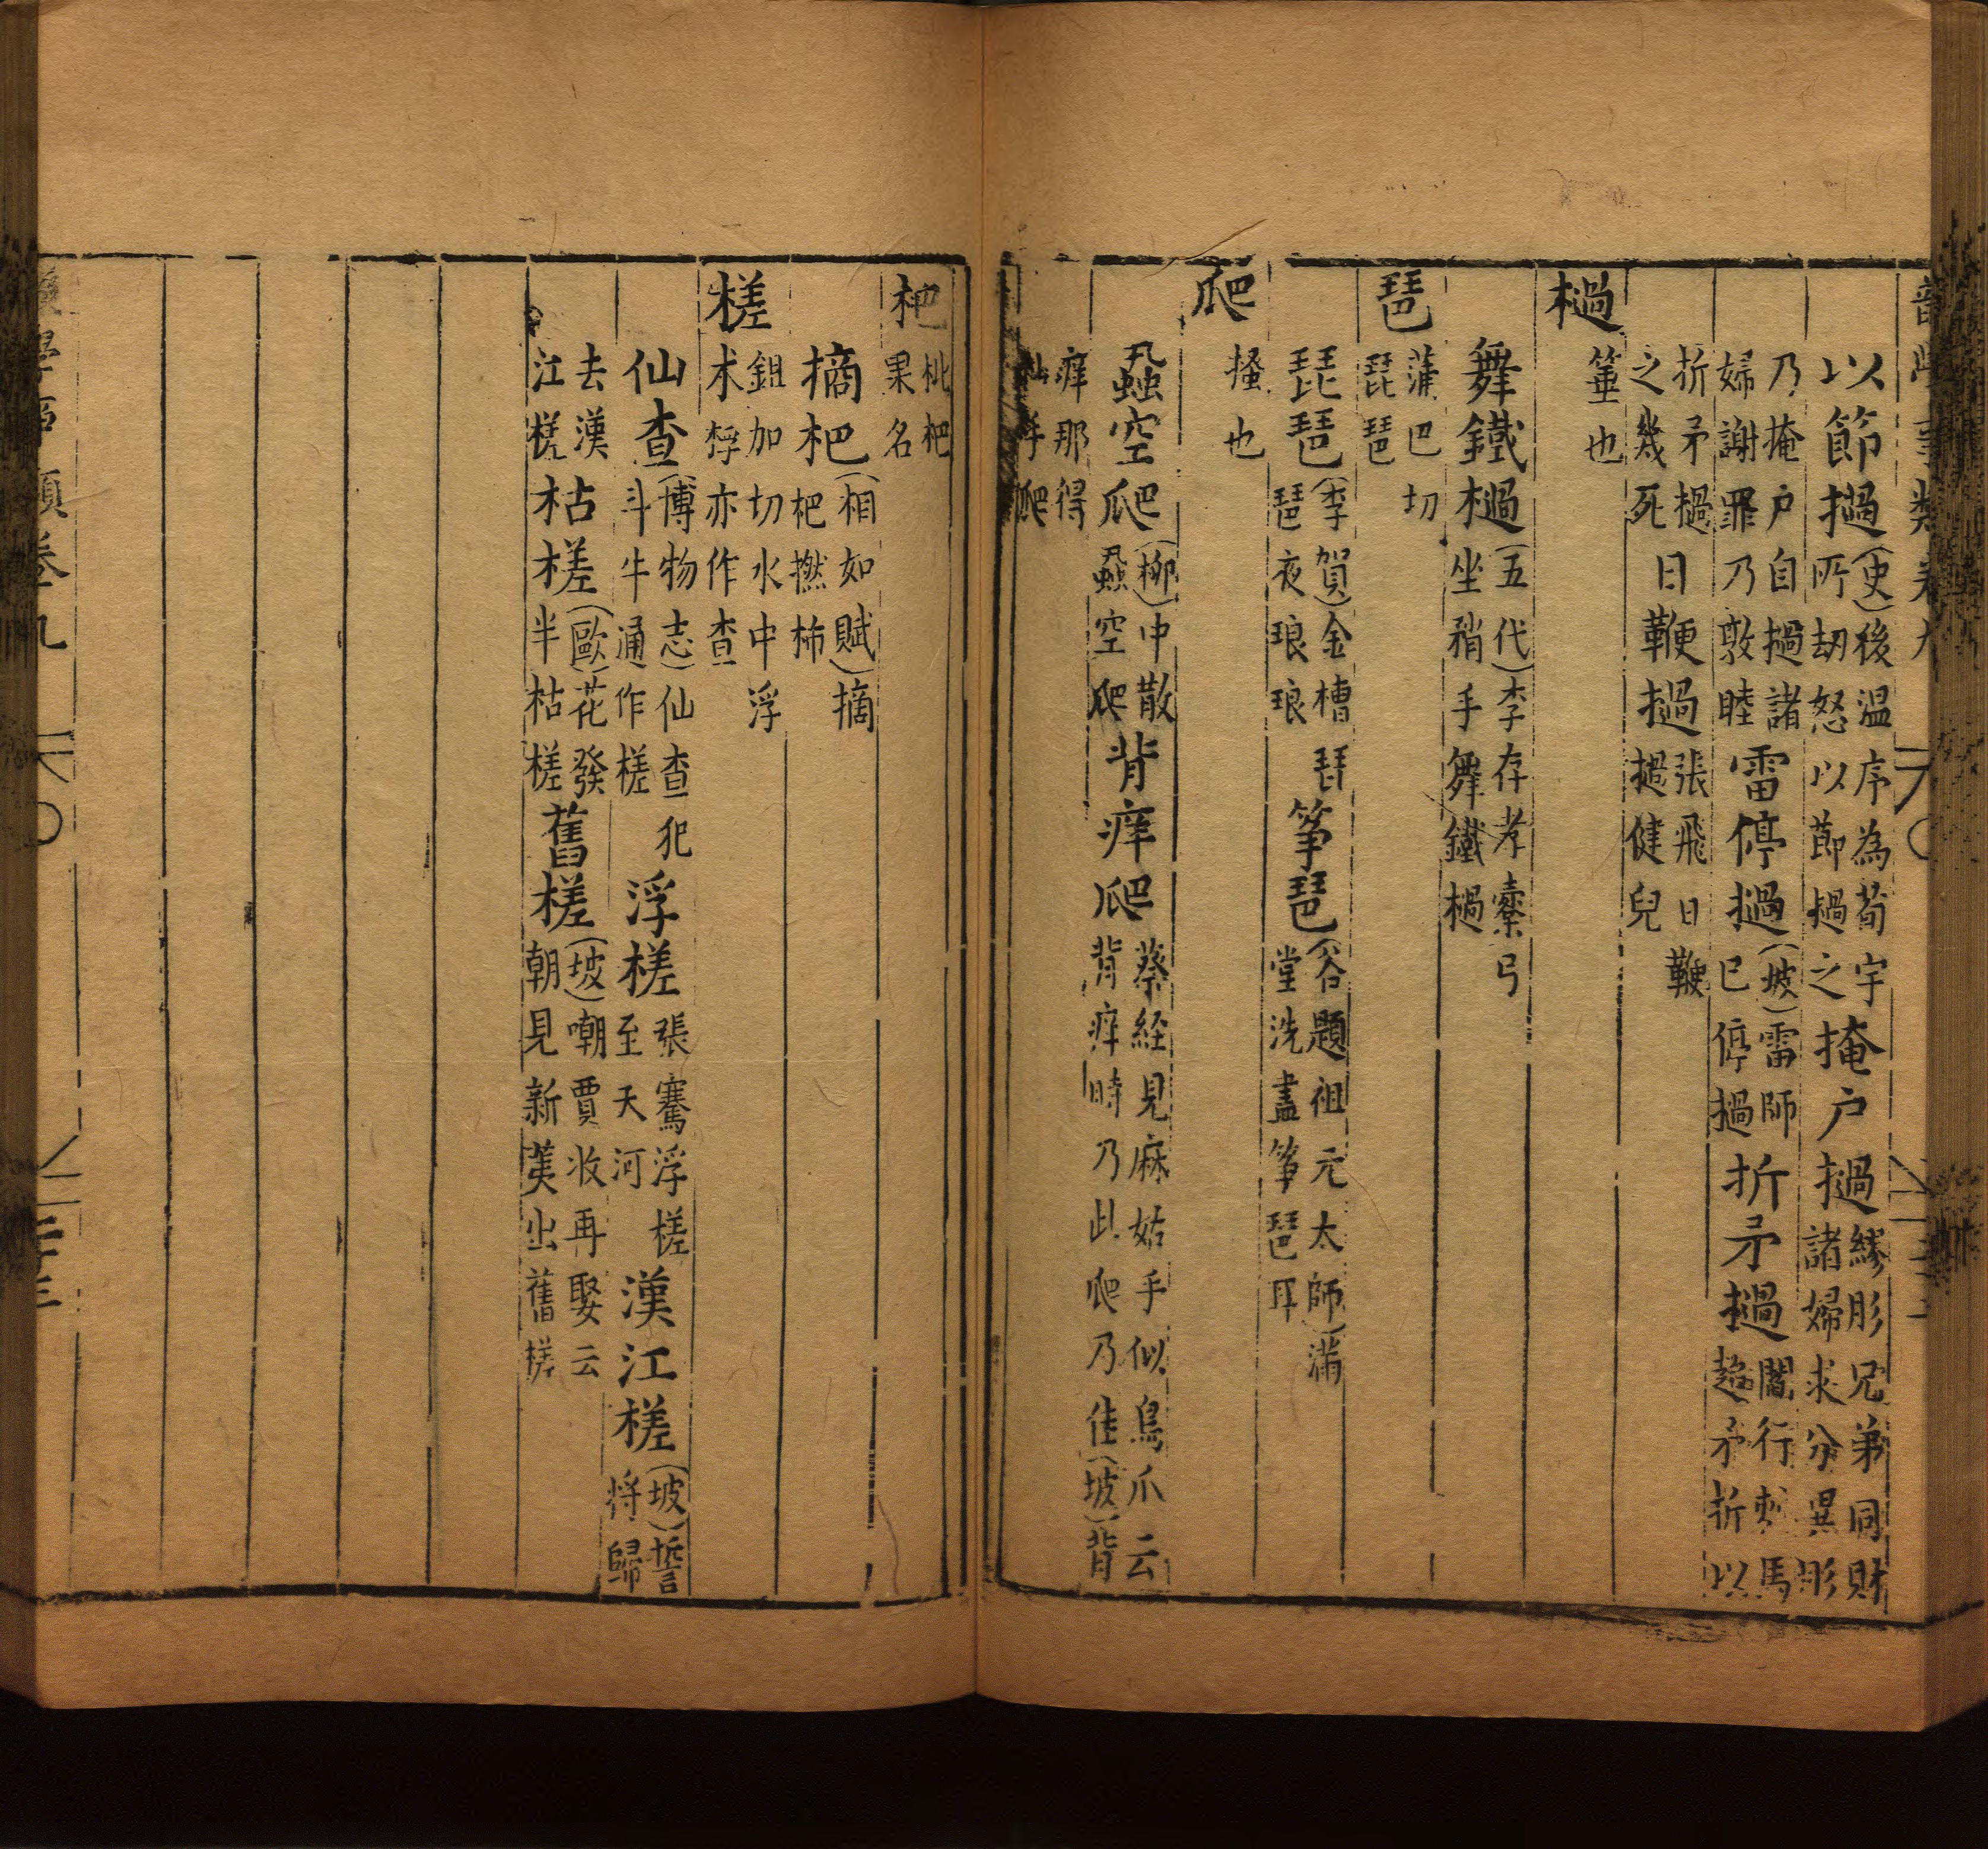 以節撾(史)後温序為荀宇所劫怒以節撾之掩户撾繆肜兄弟同財諸婦求分異肜
乃掩户自撾諸婦謝罪乃敦睦雷停撾(坡)雷師已停撾折矛撾闞行刺馬超矛折以
折矛撾之幾死日鞭撾張飛日鞭撾健兒
檛
箠也
舞鐵檛(五代)李存孝櫜弓坐矟手舞鐵檛
琶
蒲巴切琵琶
琵琶(李賀)金槽琵琶夜琅琅箏琶(谷題祖元太師)滿堂洗盡箏琶耳
爬
搔也
蝨空爬(柳)中散蝨空爬背痒爬蔡経見麻姑手似鳥爪云背痒時乃此爬乃佳(坡)背
痒那得仙手爬
杷
枇杷果名
摘杷(相如賦)摘杷橪柿
槎
鉏加切水中浮木桴亦作查
仙查(博物志)仙查犯斗牛通作槎浮槎張騫浮槎至天河漢江槎(坡)誓將歸
去漢江槎枯槎(歐)花發半枯槎舊槎(坡)嘲賈收再娶云朝見新荑出舊槎
學事類卷九